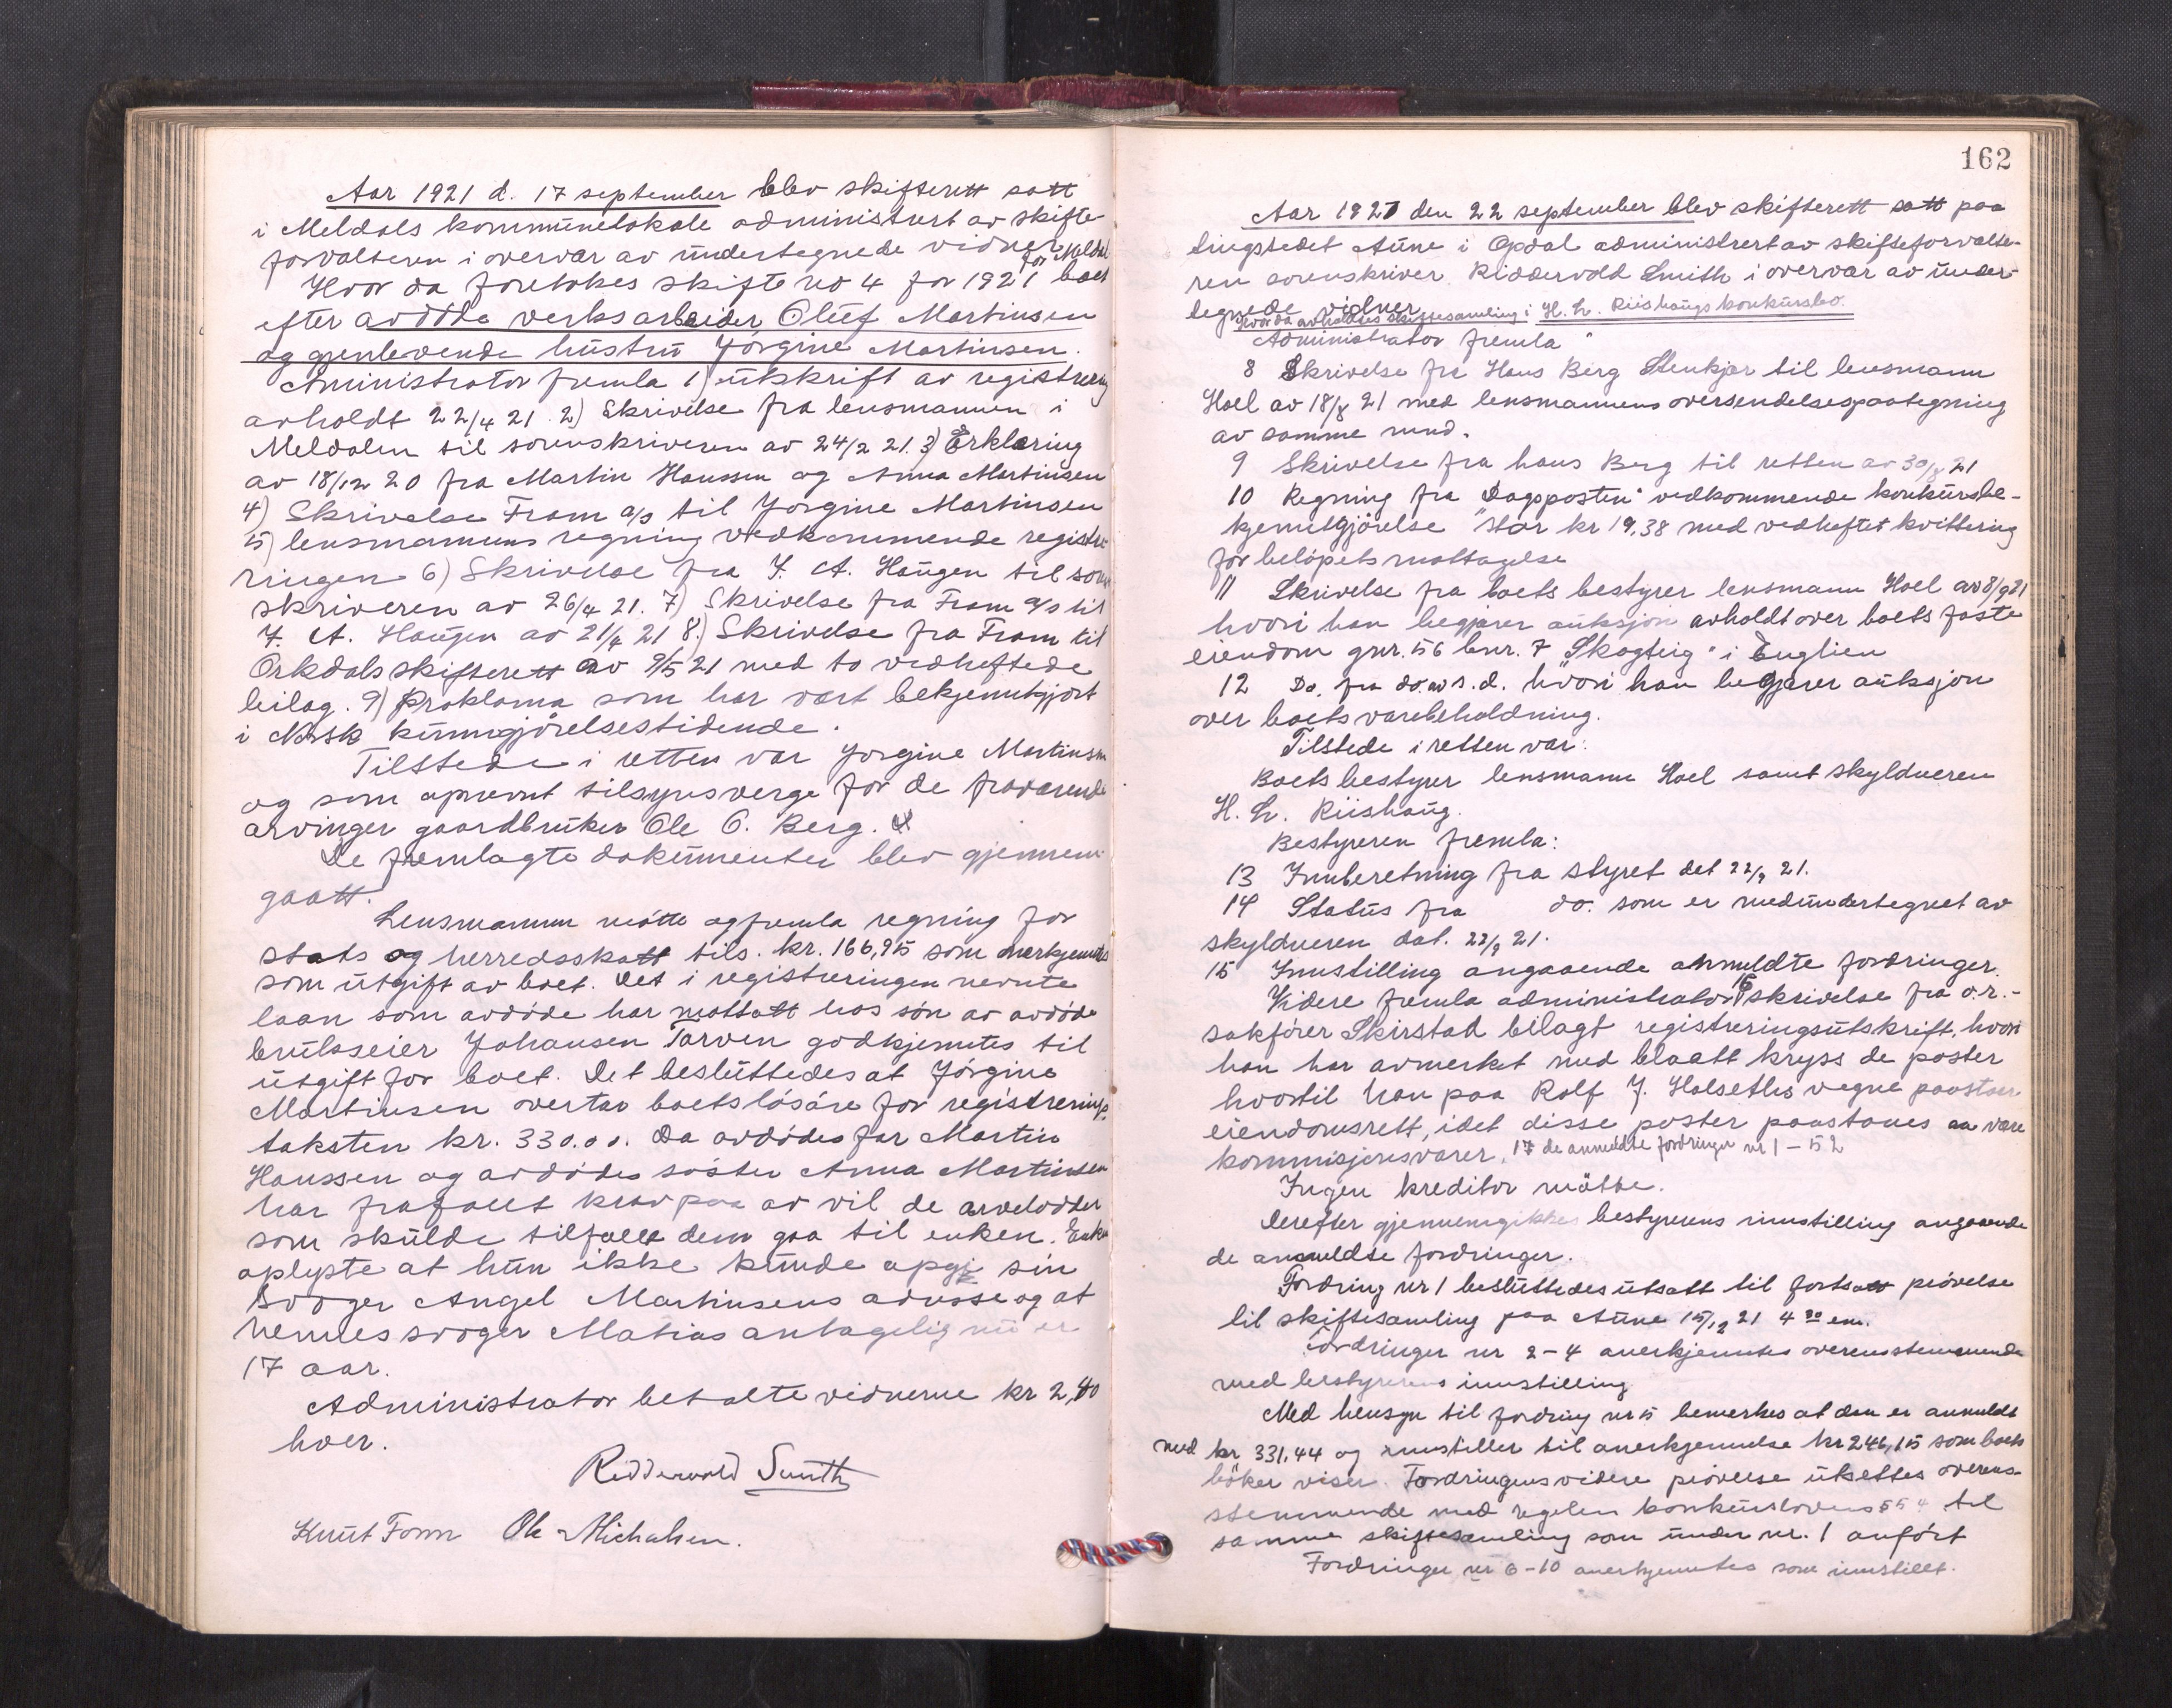 Aar 1921 d. 17 september blev skifterett satt
i Meldals kommunelokale administrert av skifte-
forvalteren i overvær av undertegnede vidner
for Meldal
Hvor da foretokes skifte no 4 for 1921 i boet
efter avdöde verksarbeider Oluf Martinsen
og gjenlevende hustru Jörgine Martinsen.
Aministrator fremla 1) utskrift av registrering
avholdt 22/4 21. 2) Skrivelse fra lensmannen i
Meldalen til sorenskriveren av 24/2 21. 3) Erklæring
av 18/12 20 fra Martin Hanssen og Anna Martinsen
4) Skrivelse Fram a/s til Jörgine Martinsen
5) lensmannens regning vedkommende registre
ringen 6) Skrivelse fra J. A. Haugen til soren
skriveren av 26/4 21. 7) Skrivelse fra Fram a/s til
J. A. Haugen av 21/4 21 8.) Skrivelse fra Fram til
Orkdals skifterett av 9/5 21 med to vedheftede
beilag. 9) Proklama som har vært bekjenntgjort
i Norsk kunngjörelsestidende.
Tilstede i retten var Jörgine Martinsen
og som opnevnt tilsynsverge for de fraværende
arvinger gaardbruker Ole O. Berg.
De fremlagte dokumenter blev gjennem-
gaatt.
Lensmannen mötte og fremla regning for
stats og herredsskatt tils. kr. 166,95 som anerkjenntes
som utgift av boet. Det i registreringen nevnte
laan som avdöde har mottatt hos sön av avdöde
bruksseier Johansen Tarven godkjenntes til
utgift for boet. Det besluttedes at Jörgine
Martinsen overtar boets lösöre for registrerings
taksten kr. 330.00. Da avdödes far Martin
Hanssen og avdödes söster Anna Martinsen
har frafallt krav paa arv vil de arvelodder
som skulde tilfalle dem gaa til enken. Enken
oplyste at hun ikke kunde opgi sin
svoger Angel Martinsens adresse og at
hennes svoger Matias antagelig nu er
17 aar.
Administrator betalte vidnerne kr 2,40
hver.
Ridderwold Smith
Knut Form Ole Michalsen.
162
Aar 1921 den 22 september blev skifterett satt paa
tingstedet Aune i Opdal administrert av skifteforvalte-
ren sorenskriver Riddervold Smith i overvær av under-
tegnede vidner
Hvor da avholdtes skiftesamling i H. L. Riishaugs konkursbo.
Administrator fremla
8 Skrivelse fra Hans Berg Stenkjær til lensmann
Hoel av 18/8 21 med lensmannens oversendelsespaategning
av samme
9 Skrivelse fra hans Berg til retten av 30/8 21
10 Regning fra "Dagsposten" vedkommende konkursbe-
kjenntgjörelse stor kr 19,38 med vedheftet kvittering
for belöpets mottagelse
11 Skrivelse fra boets bestyrer lensmann Hoel av 8/9 21
hvori han begjærer auksjon avholdt over boets faste
eiendom gnr. 56 bnr. 7 "Skogteig" i Englien
12 Do. fra do. av s. d. hvori han begjærer auksjon
over boets varebeholdning.
Tilstede i retten var:
Boets bestyrer lensmann Hoel samt skyldneren
H. L. Riishaug.
Bestyreren fremla:
13 Innberetning fra styret dat 22/9 21.
14 Status fra do. som er medundertegnet av
skyldneren dat. 22/9 21.
15 Innstilling angaaende anmeldte fordringer.
Videre fremla administrator 16 skrivelse fra o.r.-
sakförer Skirstad bilagt registreringsutskrift, hvori
han har avmerket med blaatt kryss de poster
hvortil han paa Rolf J. Halseths vegne paastaar
eiendomsrett, idet disse poster paastaaes aa være
kommisjonsvarer. 17 de anmeldte fordringer nr 1 – 52
Ingen kreditor mötte.
Derefter gjennemgikkes bestyrerens innstilling angaaende
de anmeldte fordringer.
Fordring nr 1 besluttedes utsatt til fortsatt prövelse
til skiftesamling paa Aune 15/12 21 4 30 em.
Fordringer nr 2 – 4 anerkjenntes overensstemmende
med bestyrerens innstilling
Med hensyn til fordring nr 5 bemerkes at den er anmeldt
med kr 331,44 og innstiller til anerkjennelse kr 246,15 som boets
böker viser. Fordringens videre prövelse utsettes overens-
stemmende med regelen konkurslovens § 54 til
samme skiftesamling som under nr. 1 anfört
Fordringer nr 6 – 10 anerkjenntes som innstillt.